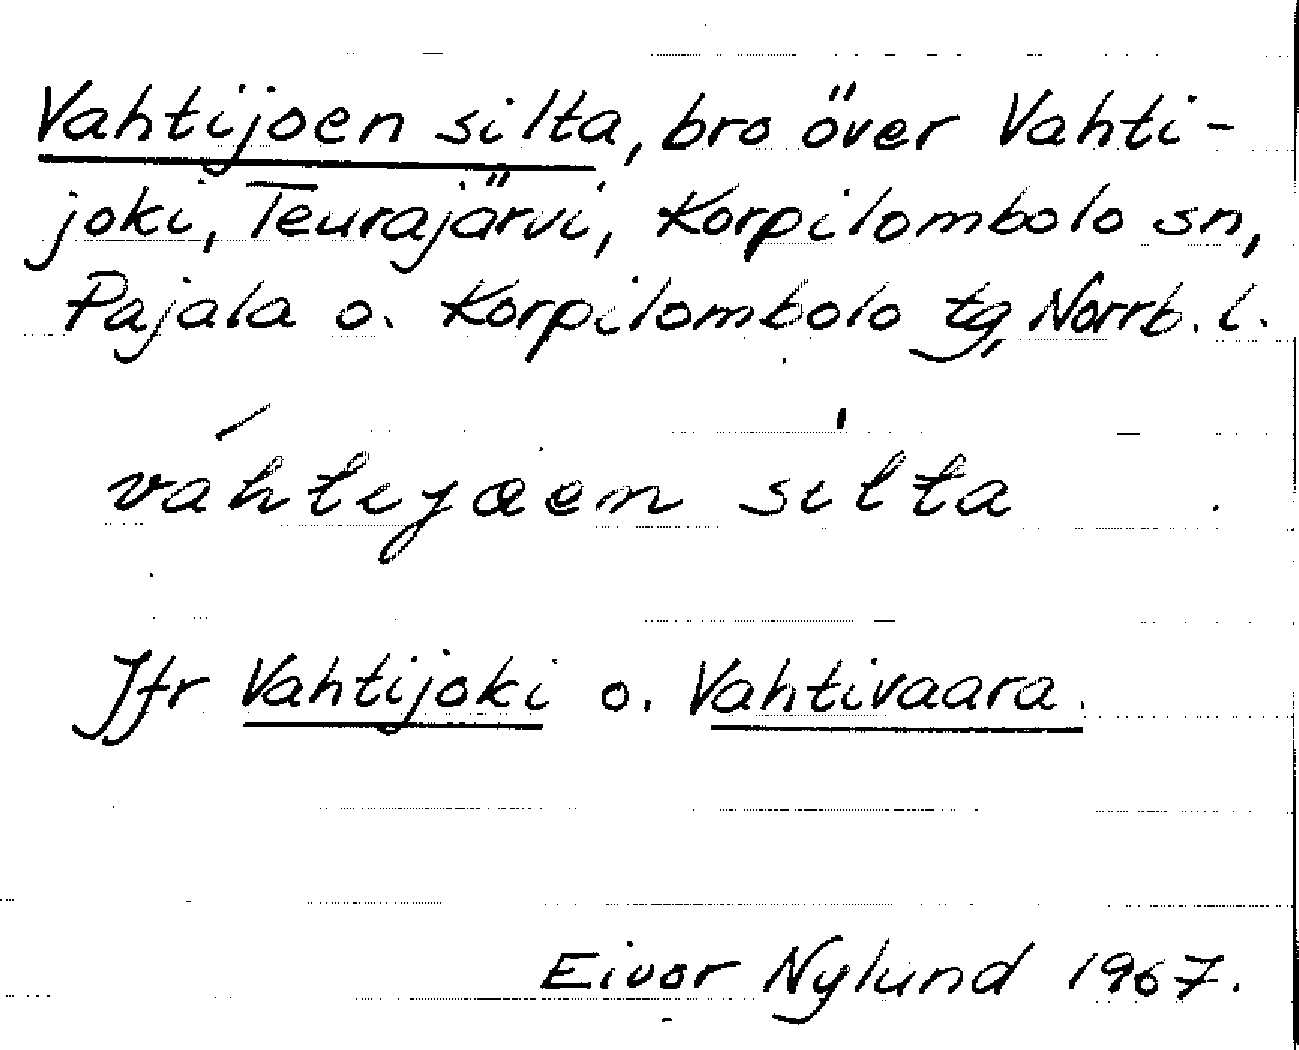 Vahtijoen silta, bro över Vahti-
joki, Teurajärvi, Korpilombolo sn,
Pajala o. Korpilombolo tg, Norrb. l.
váhtijoen sílta
Jfr Vahtijoki o. Vahtivaara.
Eivor Nylund 1967.